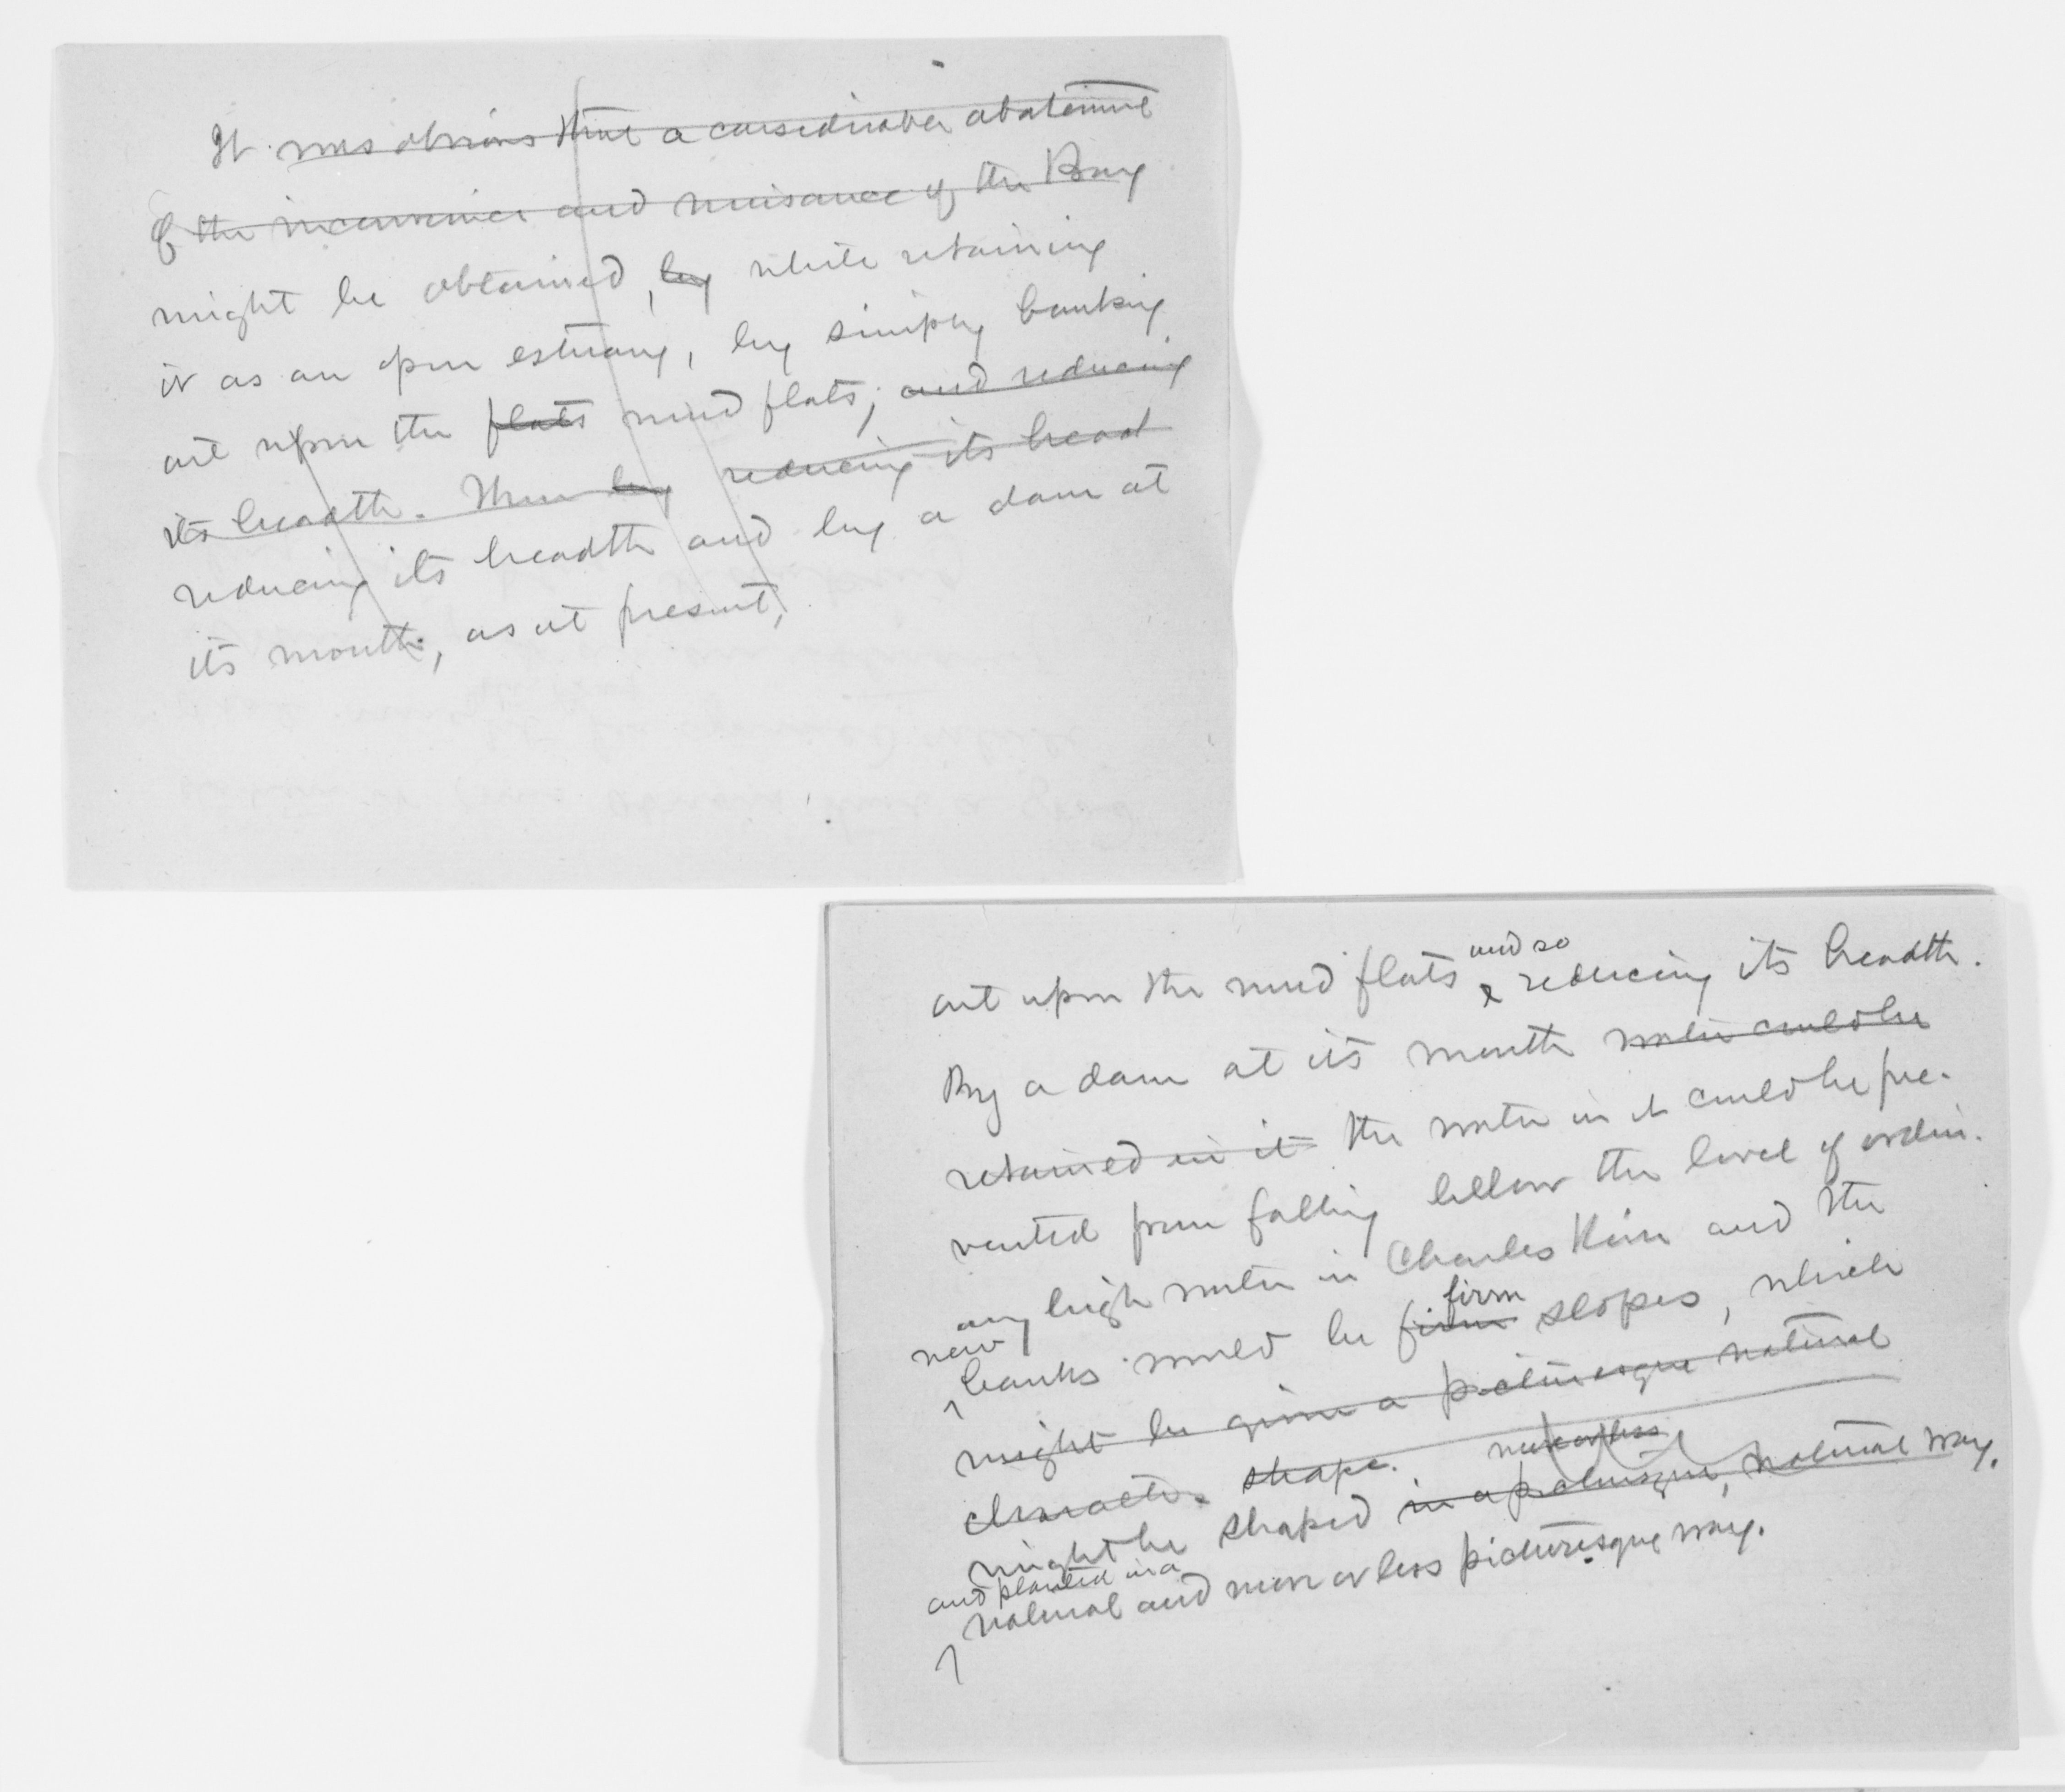 It was obvious that a considerable abatement
of the inconvenience and nuisance of the Bay
might be obtained, by while retaining
it as an open estuary, by simply banking
out upon the flats mud flats; and reducing
its breadth. Then by reducing its bread
reducing its breadth and by a dam at
its mouth, as at present,
and so
out upon the mud flats & reducing its breadth.
By a dam at its mouth water could be
retained in it the water in it could be pre-
vented from falling bellow the level of ordin-
ary high water in Charles River and the
new firm
banks would be firm slopes, which
might be given a picturesque natural
character shape. more or less
might be shaped in a picturesque, natural way.
and planted in a
natural and more or less picturesque way.